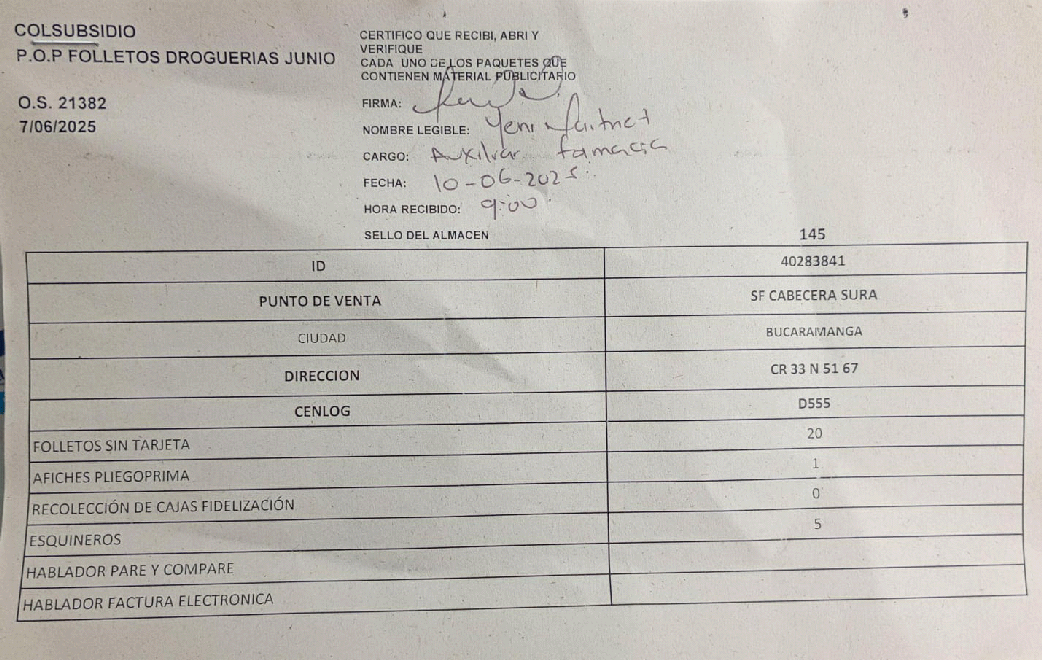 COLSUBSIDIO
P.O.P FOLLETOS DROGUERIAS JUNIO
O.S. 21382
7/06/2025
CERTIFICO QUE RECIBI, ABRI Y
VERIFIQUE
CADA UNO DE LOS PAQUETES QUE
CONTIENEN MATERIAL PUBLICITARIO
FIRMA:
NOMBRE LEGIBLE: Yeni
CARGO: Auxiliar famacia
FECHA: 10-06-2025
HORA RECIBIDO: 9:00
SELLO DEL ALMACEN 145
ID 40283841
PUNTO DE VENTA SF CABECERA SURA
CIUDAD BUCARAMANGA
DIRECCION CR 33 N 51 67
CENLOG D555
FOLLETOS SIN TARJETA 20
AFICHES PLIEGOPRIMA 1
RECOLECCIÓN DE CAJAS FIDELIZACIÓN 0
ESQUINEROS 5
HABLADOR PARE Y COMPARE
HABLADOR FACTURA ELECTRONICA